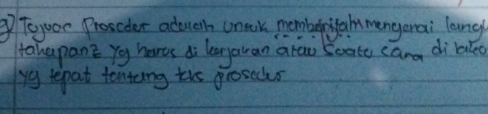 3) Tujuan Prosedur adalah untuk memberitah mengenai lang
tahapan2 yg harus di kerjakan atau Suatu cara di
yg tepat tentang teks prosedur